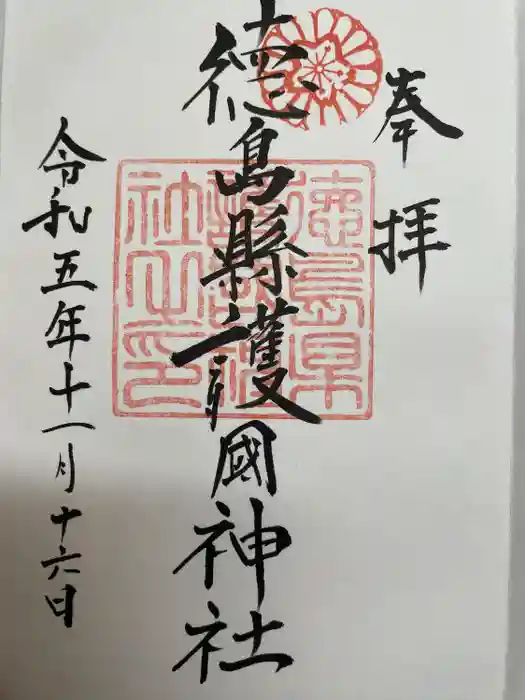 奉拝
徳島縣護國神社
徳島県
護国神
社之印
令和五年十一月十六日